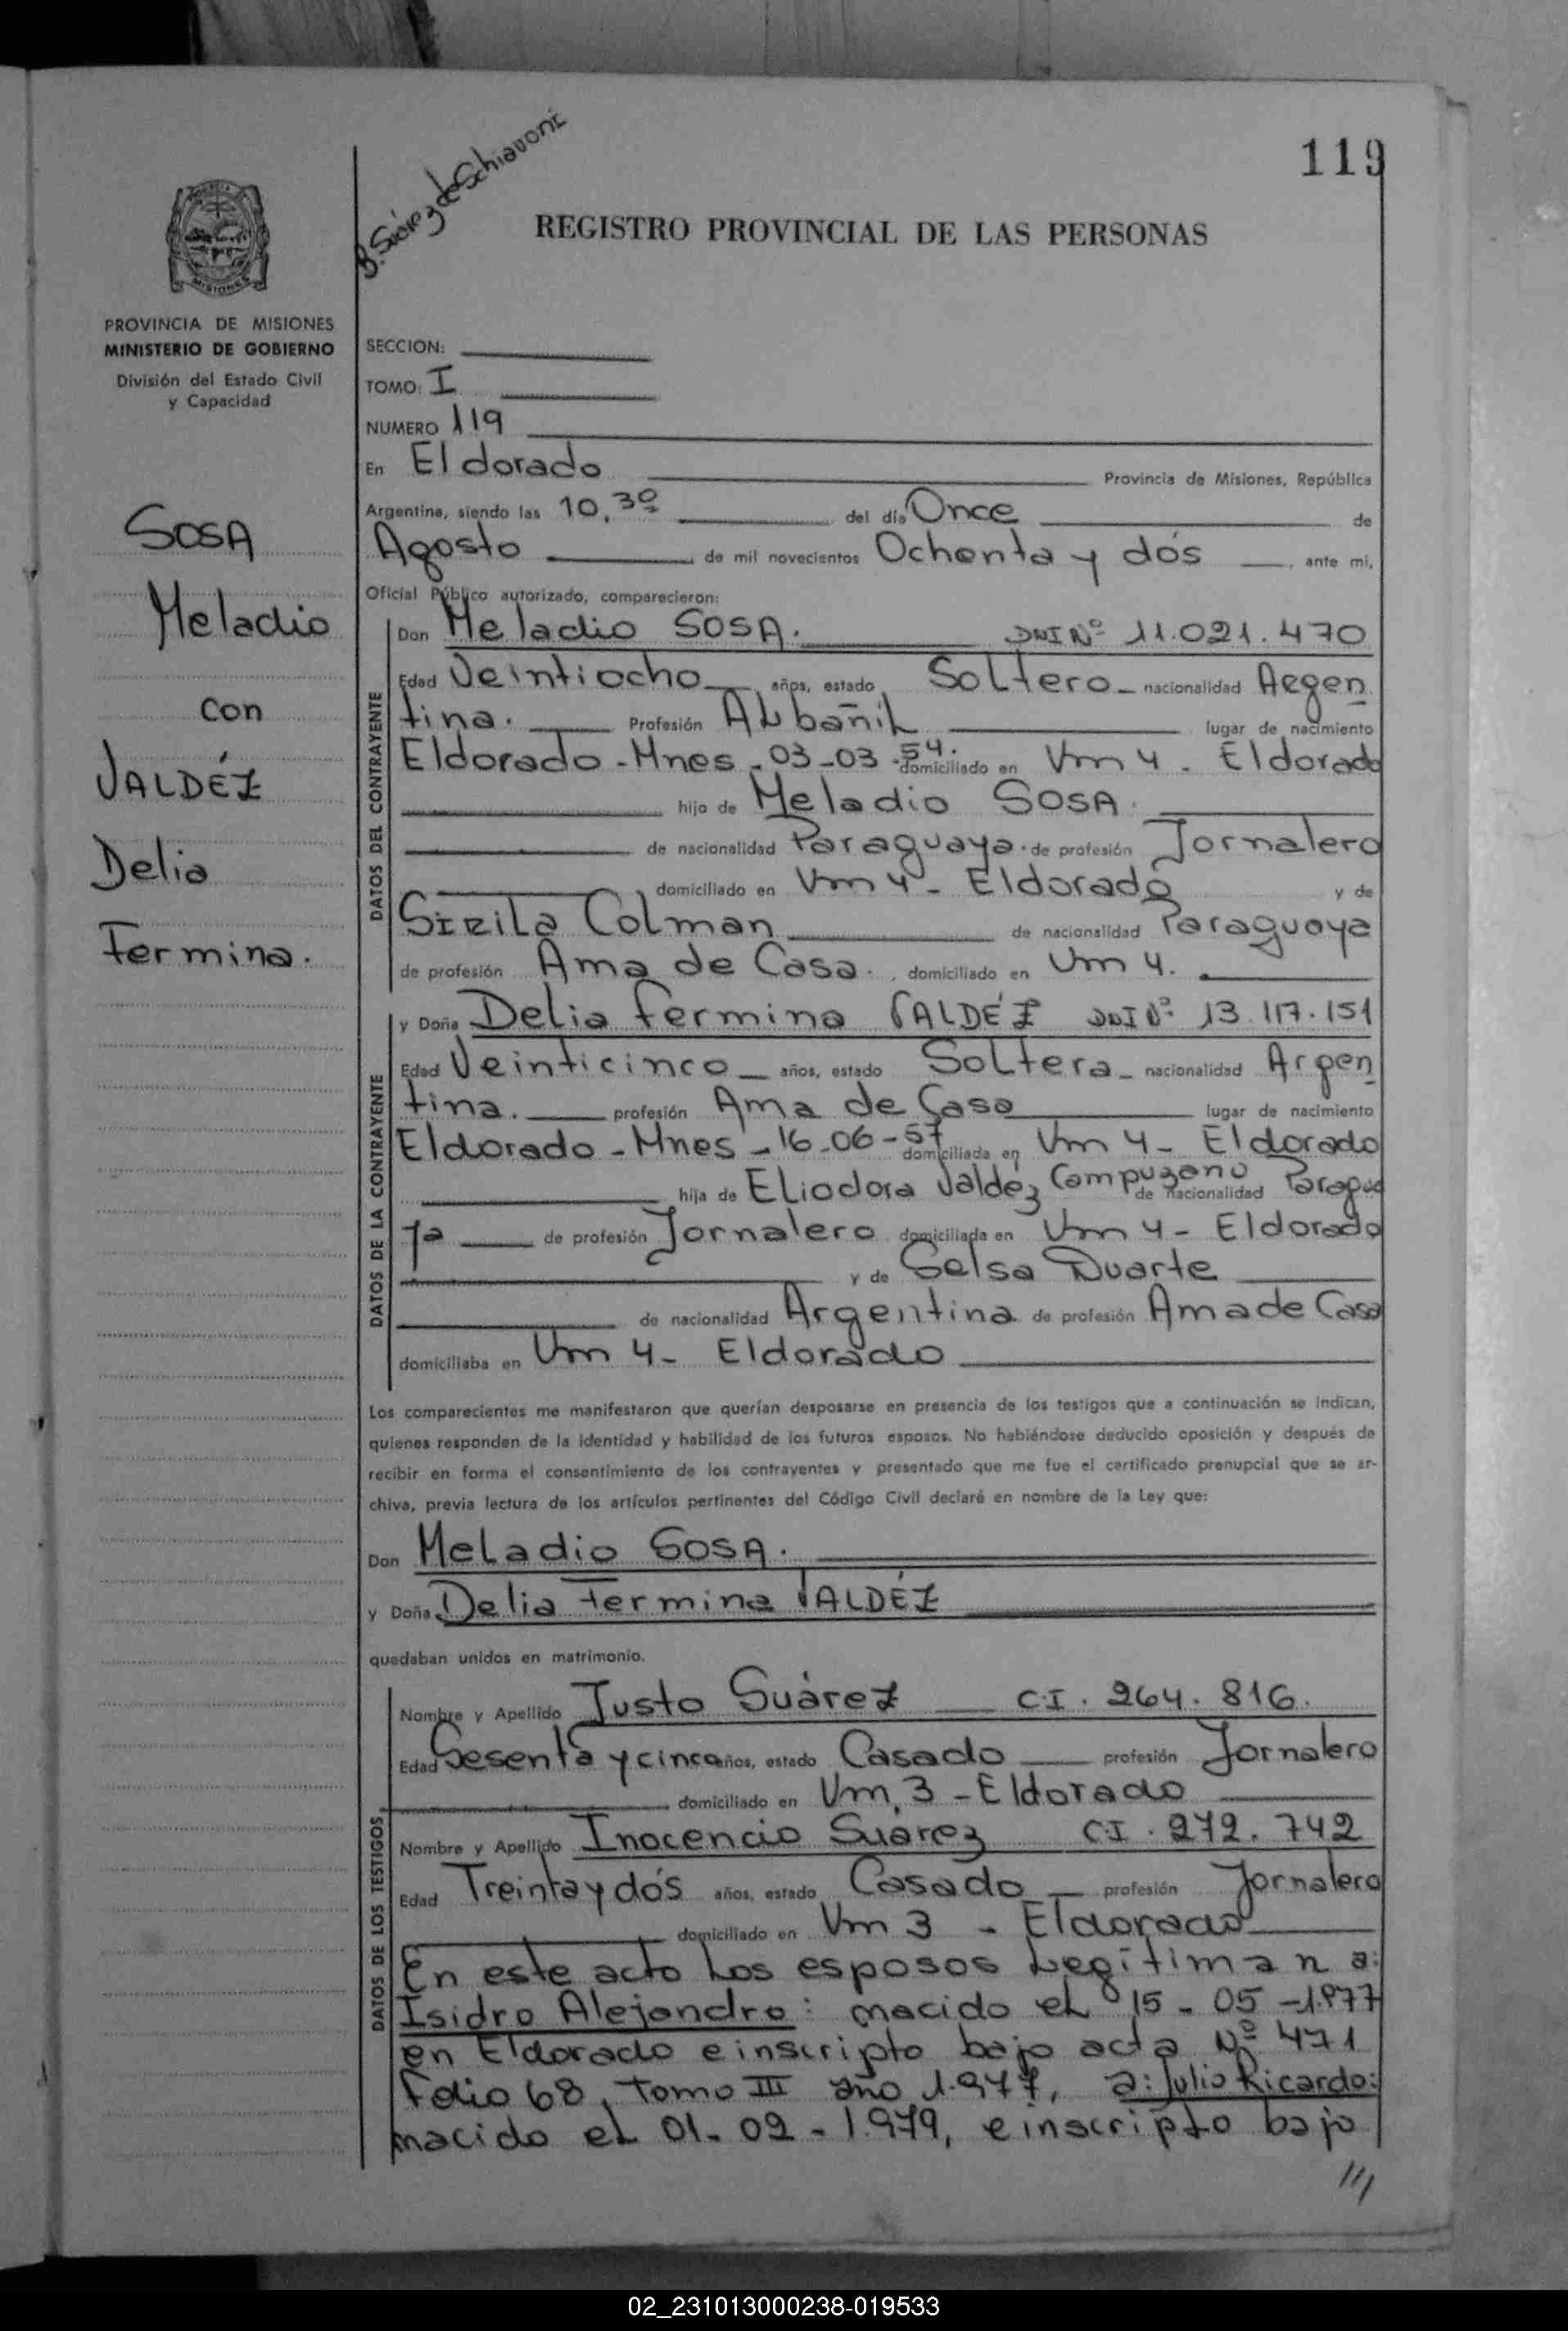 119
B. Suárez de Schiavoni
REGISTRO PROVINCIAL DE LAS PERSONAS
MISIONES
PROVINCIA DE MISIONES
MINISTERIO DE GOBIERNO
División del Estado Civil
y Capacidad
SOSA
Meladio
con
VALDÉZ
Delia
Fermina.
SECCION:
TOMO: I
NUMERO 119
En Eldorado Provincia de Misiones, República
Argentina, siendo las 10,30 del día Once de
Agosto de mil novecientos Ochenta y dós, ante mi,
Oficial Público autorizado, comparecieron:
DATOS DEL CONTRAYENTE
Don Meladio SOSA. DNI Nº 11.021.470
Edad Veintiocho años, estado Soltero nacionalidad Argen
tina. Profesión ALbañiL lugar de nacimiento
Eldorado - Mnes - 03-03-54. domiciliado en Km 4 - Eldorado
hijo de Meladio SOSA.
de nacionalidad Paraguaya. de profesión Jornalero
domiciliado en Km 4 - Eldorado y de
Sirila Colman de nacionalidad Paraguaya
de profesión Ama de Casa. domiciliado en Km 4.
DATOS DE LA CONTRAYENTE
y Doña Delia Fermina VALDÉZ DNI Nº 13.117.151
Edad Veinticinco años, estado Soltera nacionalidad Argen
tina. profesión Ama de Casa lugar de nacimiento
Eldorado - Mnes - 16-06-57 domiciliada en Km 4 - Eldorado
hija de Eliodora Valdéz Campuzano de nacionalidad Paragua
ya de profesión Jornalero domiciliada en Km 4 - Eldorado
y de Selsa Duarte
de nacionalidad Argentina de profesión Ama de Casa
domiciliaba en Km 4 - Eldorado
Los comparecientes me manifestaron que querían desposarse en presencia de los testigos que a continuación se indican,
quienes responden de la identidad y habilidad de los futuros esposos. No habiéndose deducido oposición y después de
recibir en forma el consentimiento de los contrayentes y presentado que me fue el certificado prenupcial que se ar-
chiva, previa lectura de los artículos pertinentes del Código Civil declaré en nombre de la Ley que:
Don Meladio SOSA.
y Doña Delia Fermina VALDÉZ
quedaban unidos en matrimonio.
DATOS DE LOS TESTIGOS
Nombre y Apellido Justo Suárez CI. 264.816.
Edad Sesenta y cinco años, estado Casado profesión Jornalero
domiciliado en Km. 3 - Eldorado
Nombre y Apellido Inocencio Suarez C.I. 272.742
Edad Treinta y dós años, estado Casado profesión Jornalero
domiciliado en Km 3 - Eldorado
En este acto Los esposos Legítiman a:
Isidro Alejandro: nacido el 15-05-1.977
en Eldorado e inscripto bajo acta Nº 471
Folio 68, Tomo III año 1.977, a: Julio Ricardo:
nacido el 01-02-1.979, e inscripto bajo
///
02_231013000238-019533